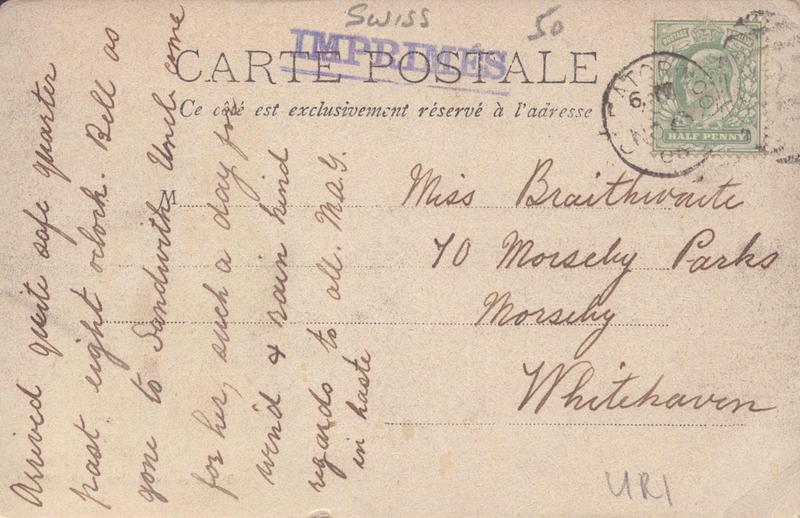 SWISS
50
IMPRIMÉS
CARTE POSTALE
Ce côté est exclusivement réservé à l'adresse
HALF PENNY
M
Miss Braithwaite
70 Morseby Parks
Morseby
Whitehaven
URI
Arrived quite safe quarter
past eight oclock. Bell as
gone to Sandwith Uncle come
for her, such a day for
wind & rain kind
regards to all. M.A.G.
in haste